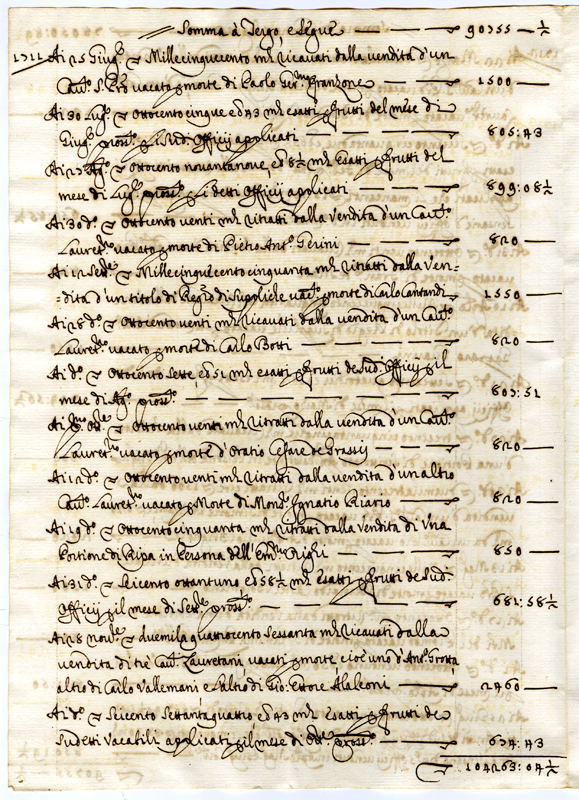 Somma à Tergo, e Segue — 90755 — ½
1711 Ai 25 Giug.º ∇ Millecinquecento m.ta ricavati dalla vendita d'un
Cau.to S. P.ro vacato p morte di Paolo Ger.mo Franzone — 1500 —
Ai 30 Lug.º ∇ Ottocento cinque e 43 m.ta esatti p frutti del mese di
Giug.º pross.º p i Sud.i Officij applicati — 805:43
Ai 27 Ag.º ∇ Ottocento novantanove, e 8½ m.ta esatti p frutti del
mese di Lug.º pross.º p i detti Officij applicati — 899:08½
Ai 30 d.º ∇ Ottocento venti m.ta ritratti dalla vendita d'un Cau.to
Lauret.no vacato p morte di Pietro Ant.º Gerini — 820 —
Ai 12 Sett.e ∇ Millecinquecento cinquanta m.ta ritratti dalla ven=
=dita d'un titolo di Reg.ro di Suppliche vac.to p morte di Carlo Cantandi — 1550 —
Ai 28 d.º ∇ Ottocento venti m.ta ricavati dalla vendita d'un Cau.to
Lauret.no vacato p morte di Carlo Botti — 820 —
Ai d.º ∇ Ottocento Sette e 51 m.ta esatti p frutti de Sud.i Officij p il
mese di Ag.º pross.º — 807:51
Ai p.mo Ott.re ∇ Ottocento venti m.ta ritratti dalla vendita d'un Cau.to
Lauret.no vacato p morte d'Oratio Cesare de Grassy — 820 —
Ai 12 d.º ∇ Ottocento venti m.ta ritratti dalla vendita d'un altro
Cau.to Lauret.no vacato p Morte di Mons.r Ignatio Riario — 820 —
Ai 19 d.º ∇ Ottocento cinquanta m.ta ritratti dalla vendita di una
Portione di Ripa in Persona dell'Em.mo Nigli — 850 —
Ai 31 d.º ∇ Seicento ottantuno e 58½ m.ta esatti p frutti de Sud.i
Officij p il mese di Set.re pross.º — 681:58½
Ai 28 Nov.re ∇ duemila quattrocento sessanta m.ta ricavati dalla
vendita di tre Cau.ti Lauretani vacati p morte cioè uno d'Ant.º Grotta
altro di Carlo Vallemani e l'altro di Gio: Ettore Alaleoni — 2460 —
Ai d.º ∇ Seicento settantaquattro e 43 m.ta esatti p frutti de
Sudetti Vacabili applicati p il mese di Ott.re pross.º — 674:43
∇ — 104263:04½